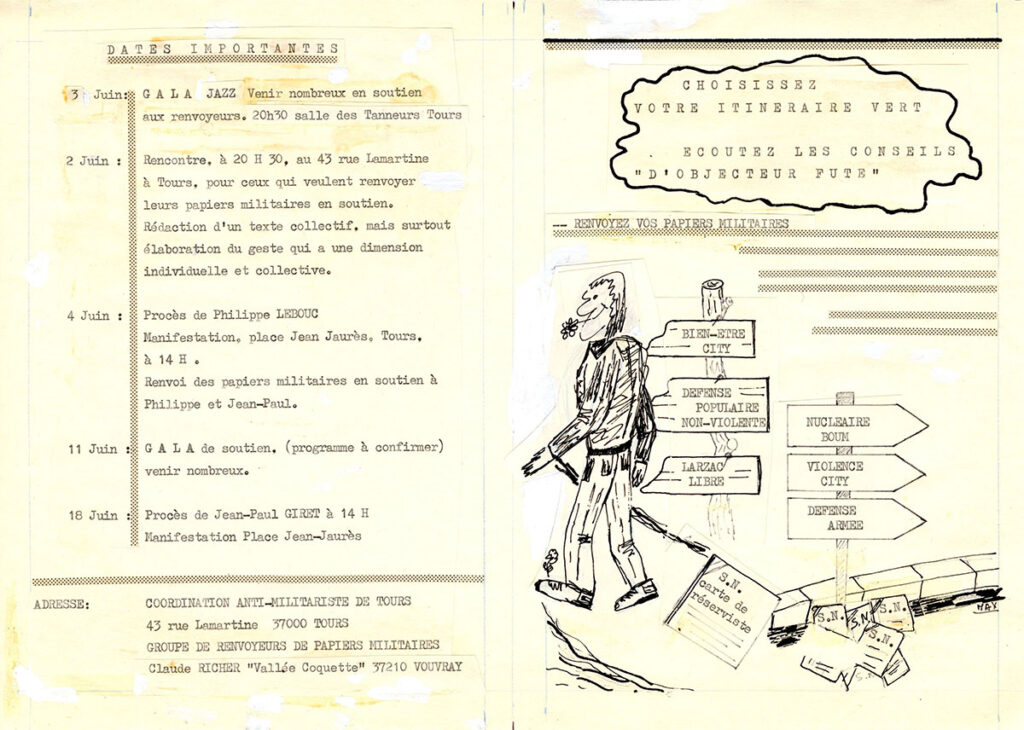 DATES IMPORTANTES
3 Juin: GALA JAZZ Venir nombreux en soutien
aux renvoyeurs. 20h30 salle des Tanneurs Tours
2 Juin : Rencontre, à 20 H 30, au 43 rue Lamartine
à Tours, pour ceux qui veulent renvoyer
leurs papiers militaires en soutien.
Rédaction d'un texte collectif, mais surtout
élaboration du geste qui a une dimension
individuelle et collective.
4 Juin : Procès de Philippe LEBOUC
Manifestation, place Jean Jaurès, Tours,
à 14 H .
Renvoi des papiers militaires en soutien à
Philippe et Jean-Paul.
11 Juin : GALA de soutien. (programme à confirmer)
venir nombreux.
18 Juin : Procès de Jean-Paul GIRET à 14 H
Manifestation Place Jean-Jaurès
ADRESSE: COORDINATION ANTI-MILITARISTE DE TOURS
43 rue Lamartine 37000 TOURS
GROUPE DE RENVOYEURS DE PAPIERS MILITAIRES
Claude RICHER "Vallée Coquette" 37210 VOUVRAY
CHOISISSEZ
VOTRE ITINERAIRE VERT
ECOUTEZ LES CONSEILS
"D'OBJECTEUR FUTE"
-- RENVOYEZ VOS PAPIERS MILITAIRES
BIEN-ETRE
CITY
DEFENSE
POPULAIRE
NON-VIOLENTE
LARZAC
LIBRE
NUCLEAIRE
BOUM
VIOLENCE
CITY
DEFENSE
ARMEE
S.N.
carte de
réserviste
S.N.
S.N
S.N.
S.N.
S.N
MAX